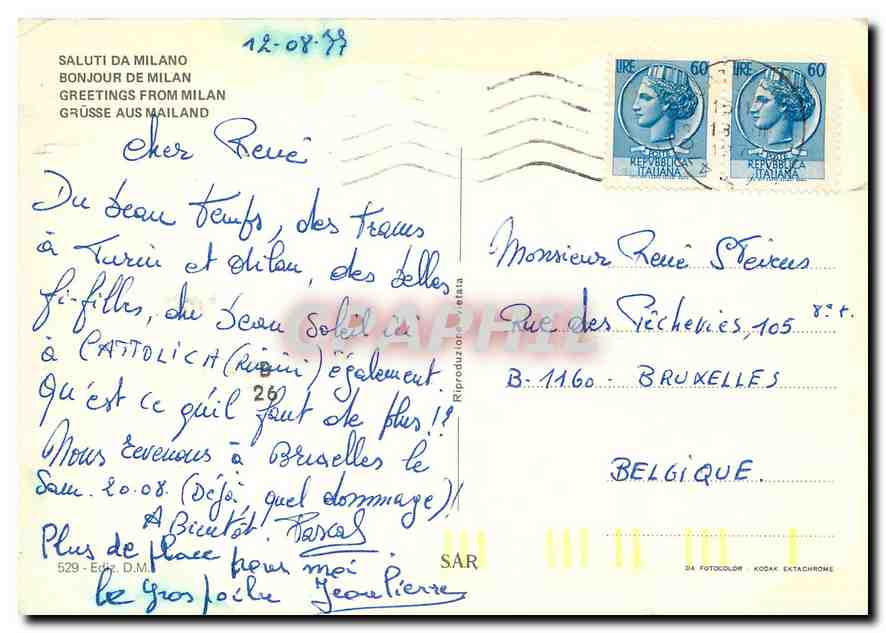 12-08-77
SALUTI DA MILANO
BONJOUR DE MILAN
GREETINGS FROM MILAN
GRÜSSE AUS MAILAND
LIRE 60
POSTE
REPVBBLICA
ITALIANA
LIRE 60
POSTE
REPVBBLICA
ITALIANA
Cher René
Du beau temps, des trams
à Turin et Milan, des belles
fi-filles, du beau soleil ici
à CATTOLICA (Rimini) également.
Qu'est ce qu'il faut de plus !?
Nous revenons à Bruxelles le
Sam. 20.08. (Déjà, quel dommage)!
A Bientôt. Pascal
Plus de place pour moi
le gros Jean Pierre
B
26
529 - Ediz. D.M.
Riproduzione vietata
GRAPHIL
Monsieur René
Rue des Pêcheries, 105
B-1160- BRUXELLES
BELGIQUE.
SAR
DA FOTOCOLOR - KODAK EKTACHROME